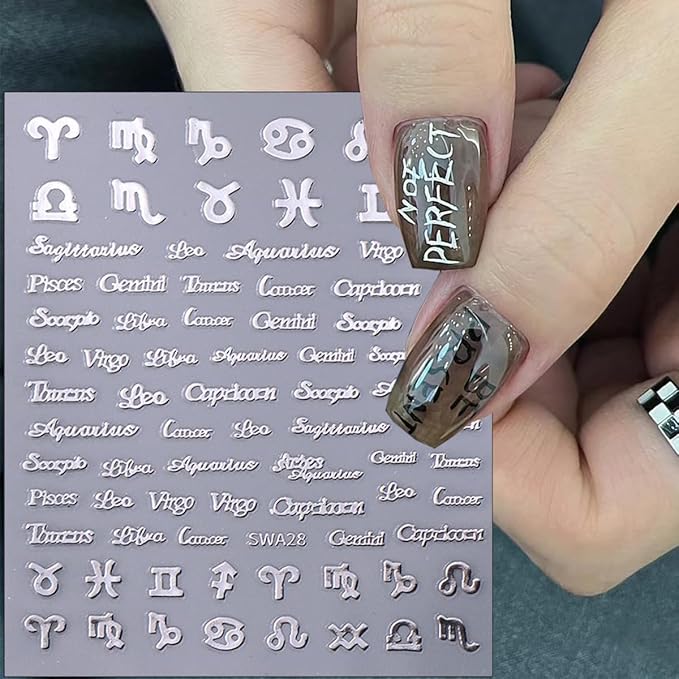 NOT
PERFECT
Sagittarius Leo Aquarius Virgo
Pisces Gemini Taurus Cancer Capricorn
Scorpio Libra Cancer Gemini Scorpio
Leo Virgo Libra Aquarius Gemini
Taurus Leo Capricorn Scorpio
Aquarius Cancer Leo Sagittarius
Scorpio Libra Aquarius Aries Gemini Taurus
Aquarius
Pisces Leo Virgo Virgo Capricorn Leo Cancer
Taurus Libra Cancer SWA28 Gemini Capricorn